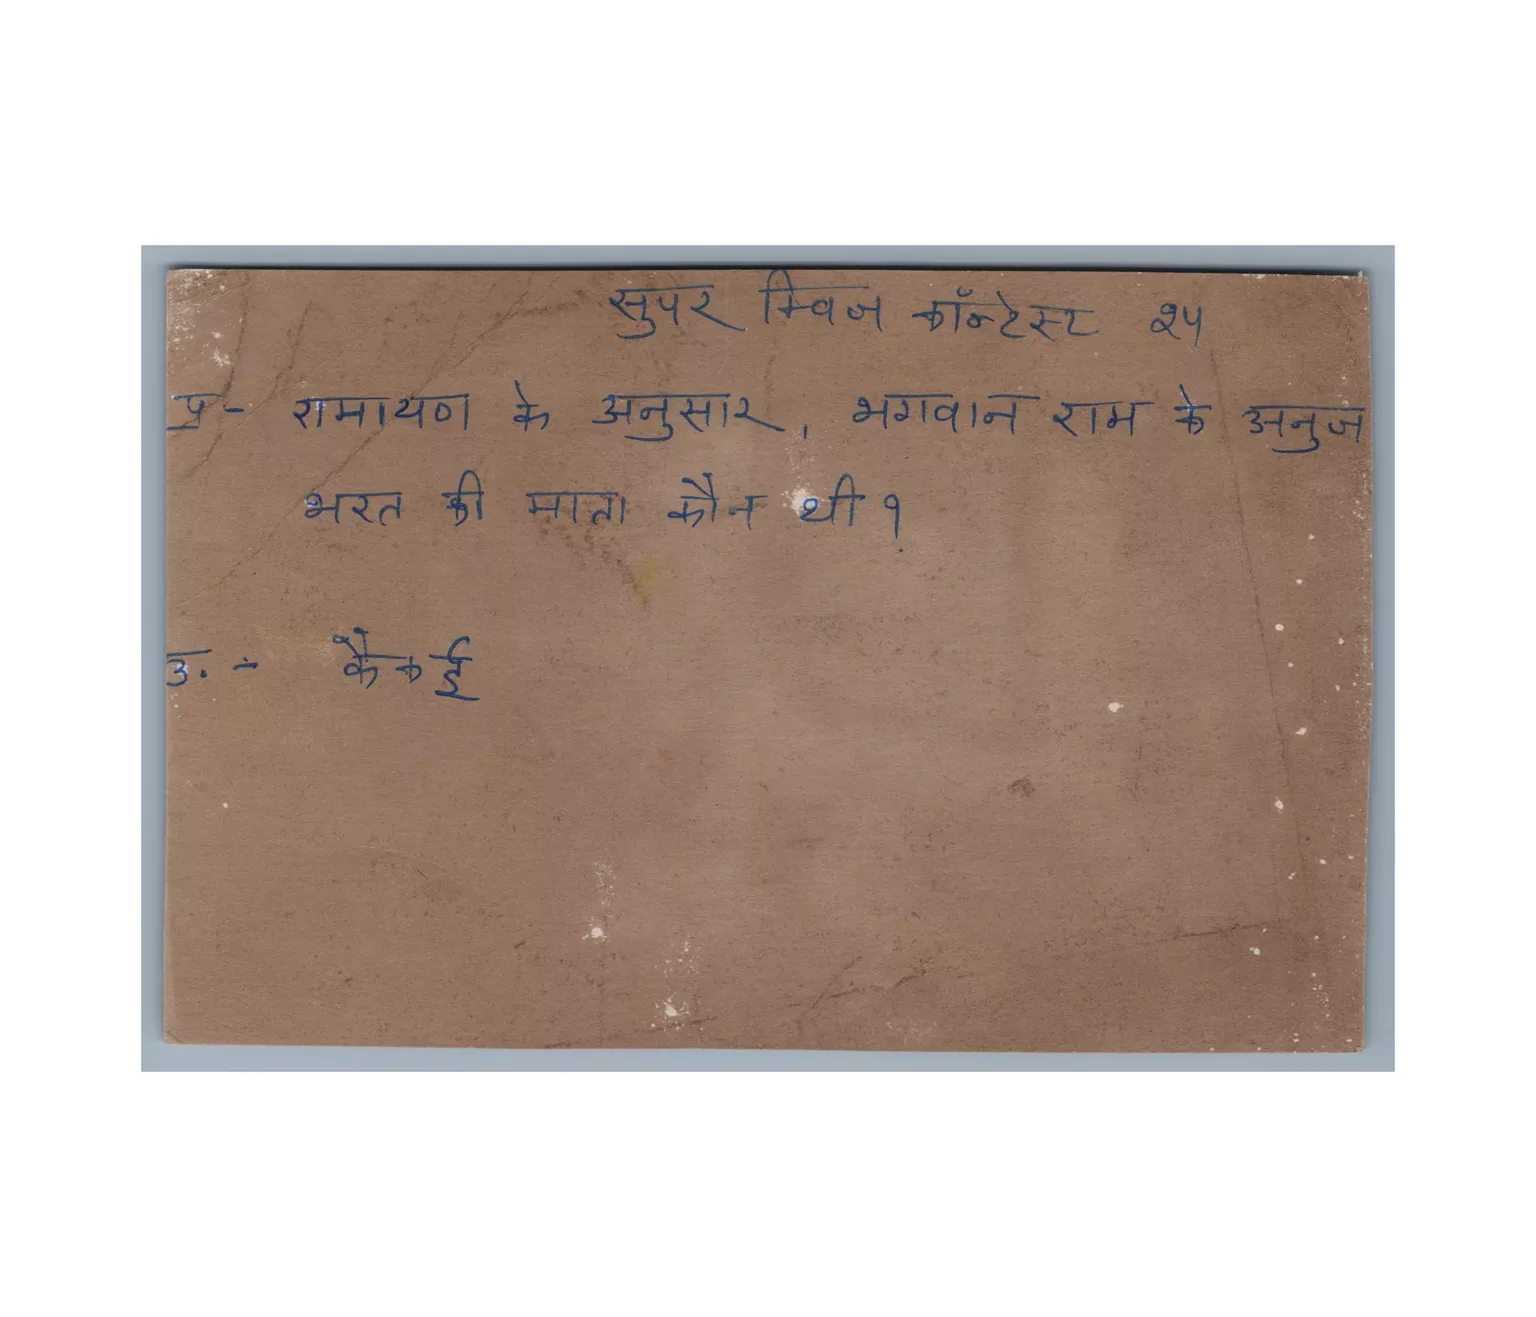 सुपर क्विज कॉन्टेस्ट २५
प्र- रामायण के अनुसार, भगवान राम के अनुज
भरत की माता कौन थी ?
उ. - कैकई